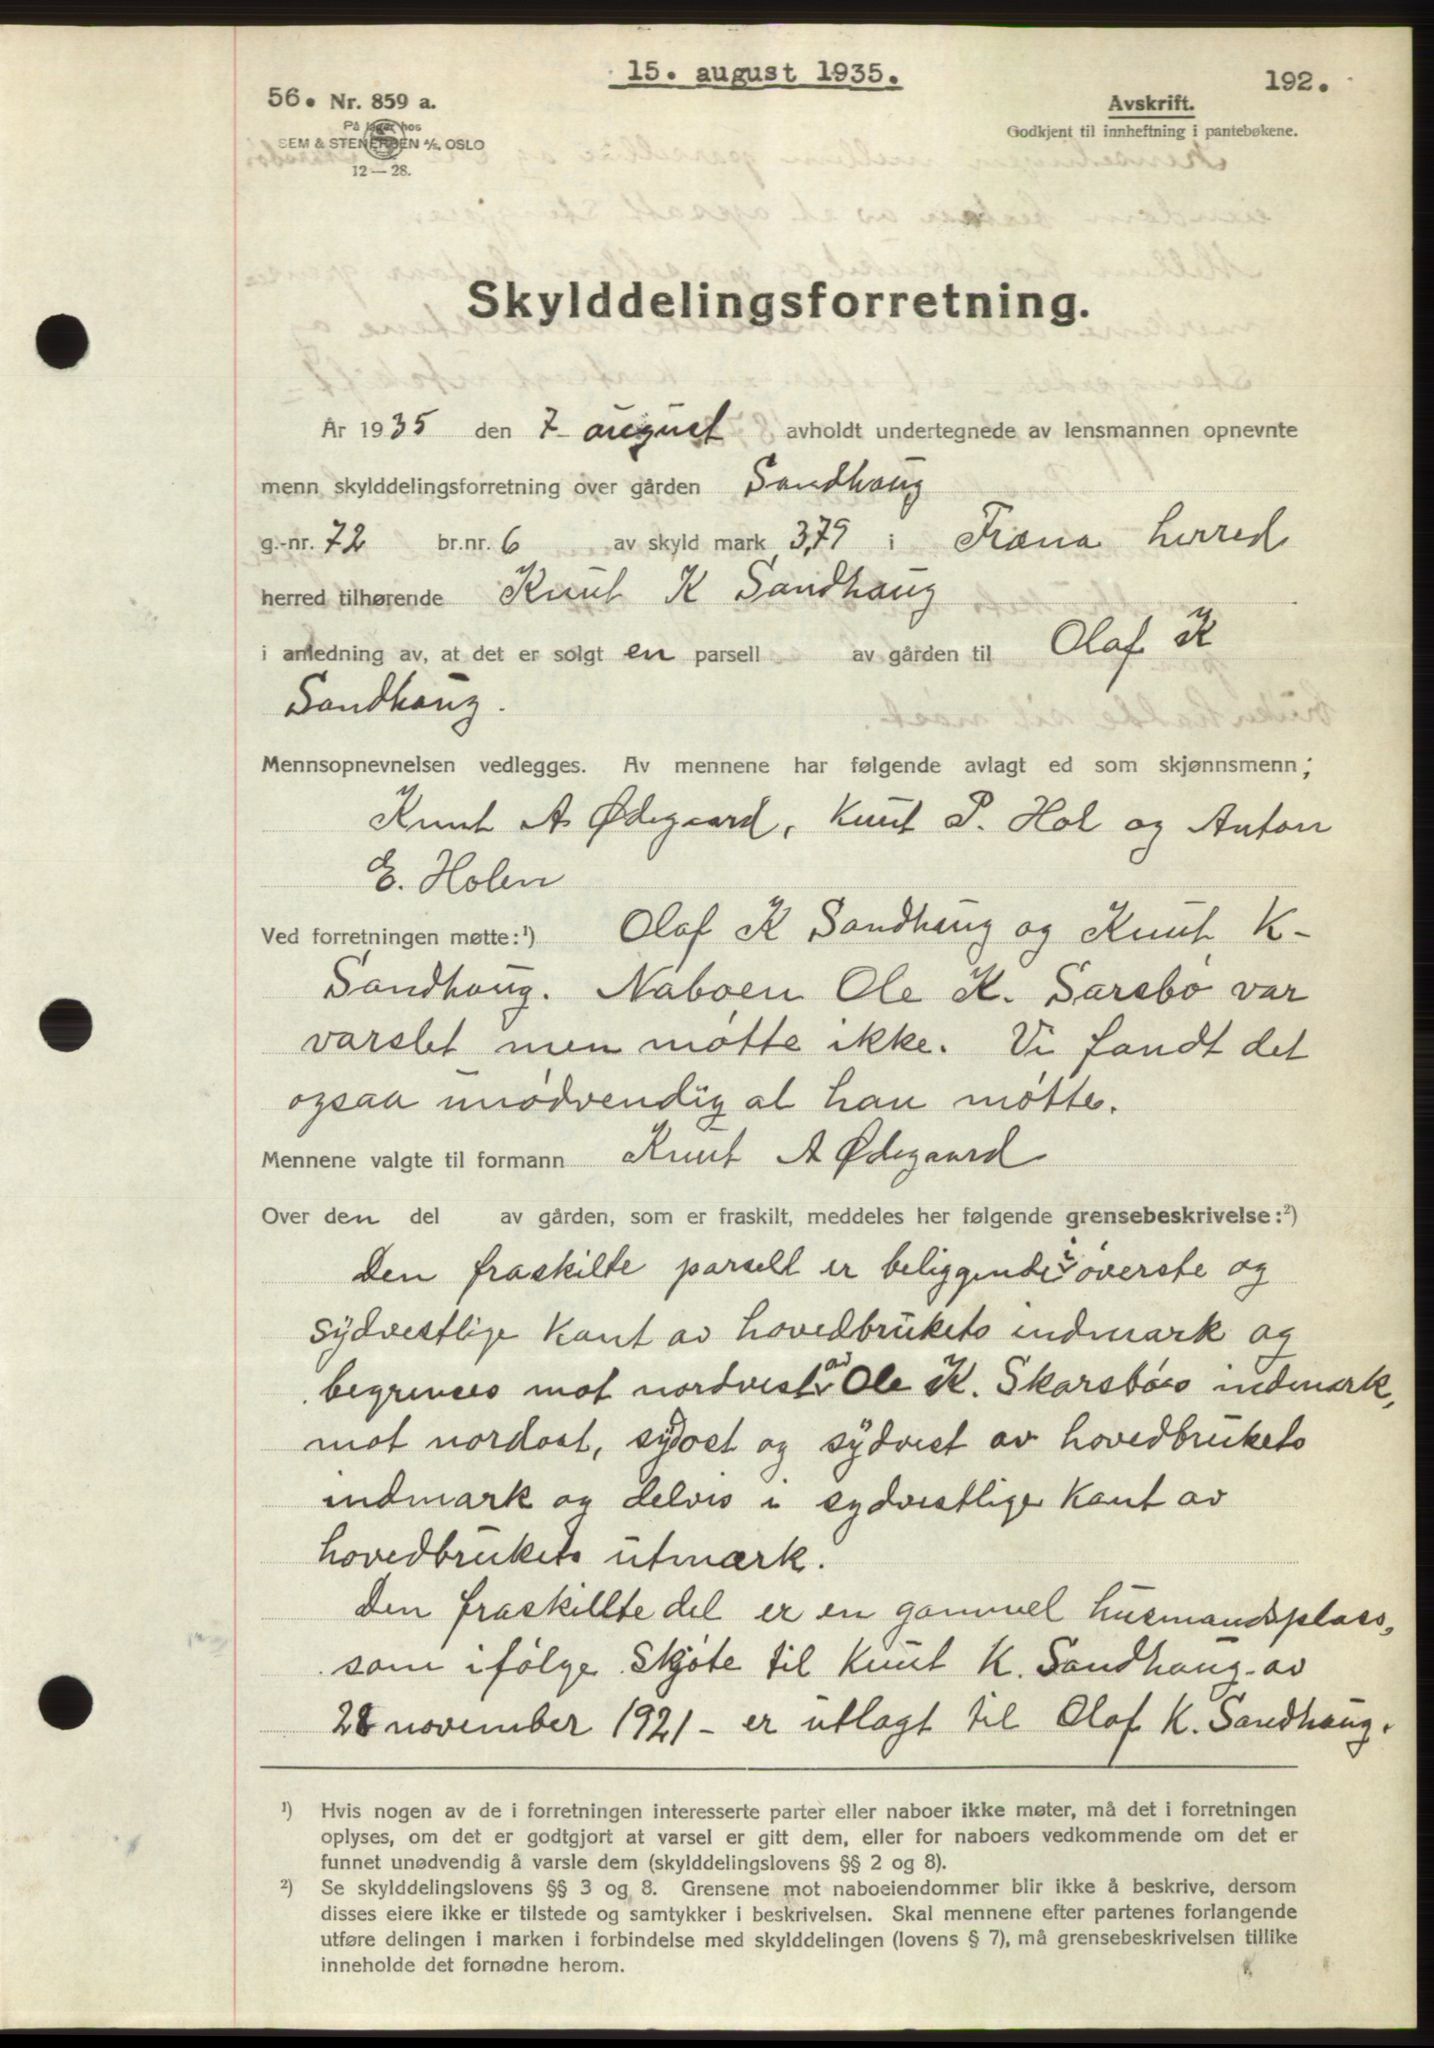 15. august 1935.
192.
56. Nr. 859 a.
På lager hos
SEM & STENERSEN A/S, OSLO
12 — 28.
Avskrift.
Godkjent til innheftning i pantebøkene.
Skylddelingsforretning.
År 1935 den 7 august avholdt undertegnede av lensmannen opnevnte
menn skylddelingsforretning over gården Sandhaug
g.-nr. 72 br.nr. 6 av skyld mark 3,79 i Fræna herred
herred tilhørende Knut K Sandhaug
i anledning av, at det er solgt en parsell av gården til Olaf K
Sandhaug.
Mennsopnevnelsen vedlegges. Av mennene har følgende avlagt ed som skjønnsmenn;
Knut A Ødegaard, Knut P. Hol og Anton
E. Holen
Ved forretningen møtte:¹) Olaf K Sandhaug og Knut K-
Sandhaug. Naboen Ole K. Sarsbø var
varslet men møtte ikke. Vi fandt det
ogsaa unødvendig at han møtte.
Mennene valgte til formann Knut A Ødegaard
Over den del av gården, som er fraskilt, meddeles her følgende grensebeskrivelse:²)
Den fraskilte parsell er beliggende i øverste og
sydvestlige kant av hovedbrukets indmark og
begrenses mot nordvest av Ole K. Skarsbøs indmark,
mot nordost, sydost og sydvest av hovedbrukets
indmark og delvis i sydvestlige kant av
hovedbrukets utmark.
Den fraskillte del er en gammel husmandsplass,
som ifølge skjøte til Knut K. Sandhaug av
28 november 1921 - er utlagt til Olaf K. Sandhaug.
¹) Hvis nogen av de i forretningen interesserte parter eller naboer ikke møter, må det i forretningen
oplyses, om det er godtgjort at varsel er gitt dem, eller for naboers vedkommende om det er
funnet unødvendig å varsle dem (skylddelingslovens §§ 2 og 8).
²) Se skylddelingslovens §§ 3 og 8. Grensene mot naboeiendommer blir ikke å beskrive, dersom
disses eiere ikke er tilstede og samtykker i beskrivelsen. Skal mennene efter partenes forlangende
utføre delingen i marken i forbindelse med skylddelingen (lovens § 7), må grensebeskrivelsen tillike
inneholde det fornødne herom.